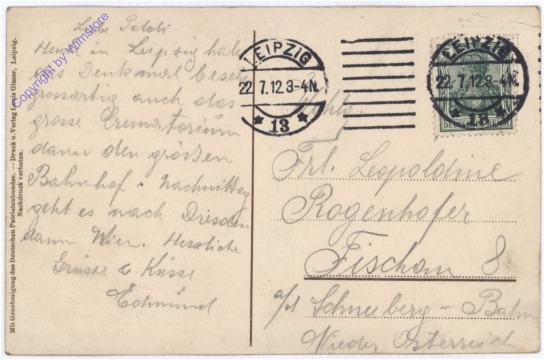 Mit Genehmigung des Deutschen Patriotenbundes. — Druck u. Verlag Louis Glaser, Leipzig.
Nachdruck verboten.
Copyright by Wilmstore
Liebe Poldi
Heute in Leipzig habe
das Denkmal beseh
grossartig auch das
grosse Crematorium
dann den grössten
Bahnhof. Nachmittag
geht es nach Dresden
dann Wien. Herzliche
Grüsse & Küsse
Edmund
LEIPZIG
22.7.12.3-4N.
* 13 *
LEIPZIG
22.7.12.3-4N.
* 13 *
Frl. Leopoldine
Rogenhofer
Fischau 8
a/d Schneeberg-Bahn
Nieder Österreich